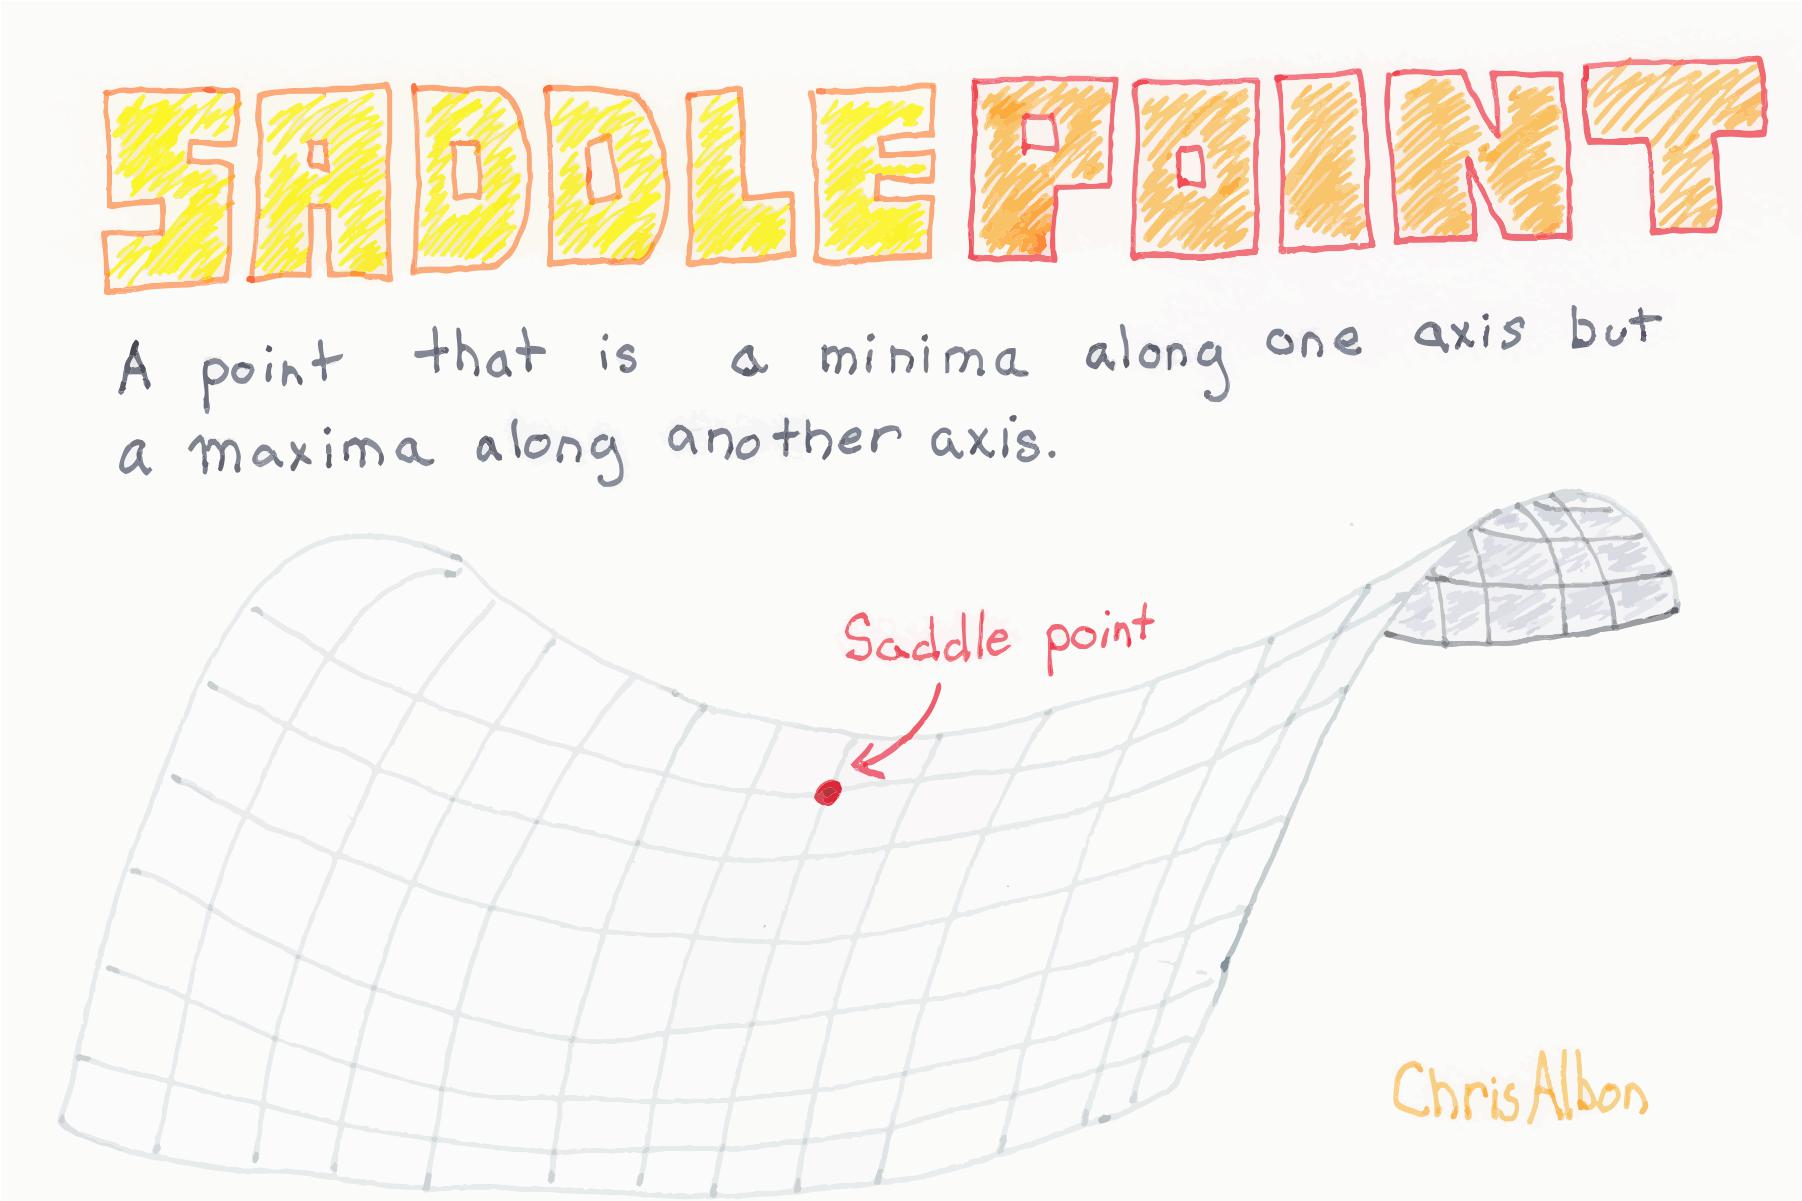 SADDLE POINT
A point that is a minima along one axis but
a maxima along another axis.
Saddle point
Chris Albon